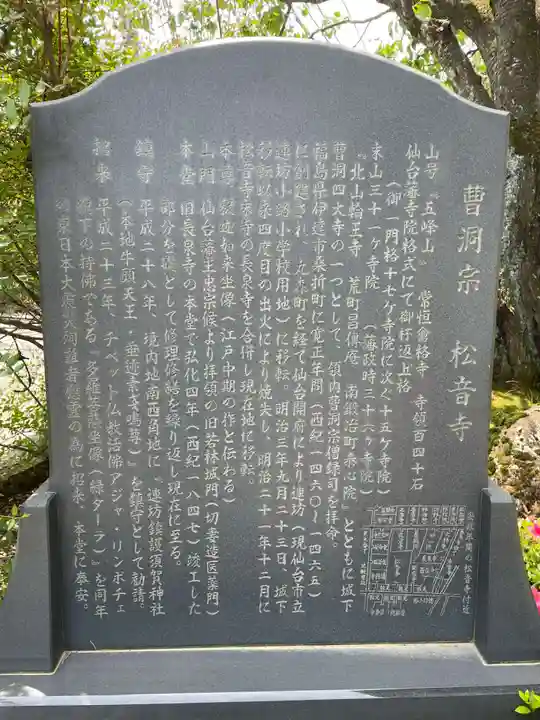 曹洞宗　松音寺
山号『五峰山』　常恒會格寺　寺領百四十石
仙台藩寺院格式にて御杯返上格
（御一門格十七ケ寺院に次ぐ十五ケ寺院）
末山三十一ケ寺院　（藩政時三十六ケ寺院）
『北山輪王寺　荒町昌傳庵　南鍛冶町泰心院』とともに城下
曹洞四大寺の一つとして、領内曹洞宗僧録司を拝命。
福島県伊達市桑折町に寛正年間（西紀一四六〇～一四六五）
に創建され、
町を経て仙台開府により連坊（現仙台市立
連坊小路小学校用地）に移転。明治三年九月二十三日、城下
移転以来四度目の出火により焼失し、明治二十一年十二月に
松音寺末寺の長泉寺を合併し現在地に移転。
本尊　釈迦如来坐像（江戸中期の作と伝わる）
山門　仙台藩主忠宗候より拝領の旧若林城門（切妻造医薬門）
本堂　旧長泉寺の本堂で弘化四年（西紀一八四七）竣工した
部分を
として修理修繕を繰り返し現在に至る。
鎮守　平成二十八年、境内地南西角地に『連坊鎮護須賀神社
（本地牛頭天王・垂迹素戔嗚尊）』を鎮守として勧請。
招来　平成二十三年、チベット仏教活佛アジャ・リンポチェ
猊下の持佛である『多羅菩薩坐像（緑ターラ）』を同年
の東日本大震災
慰霊の為に招来、本堂に奉安。
年間の松音寺付近